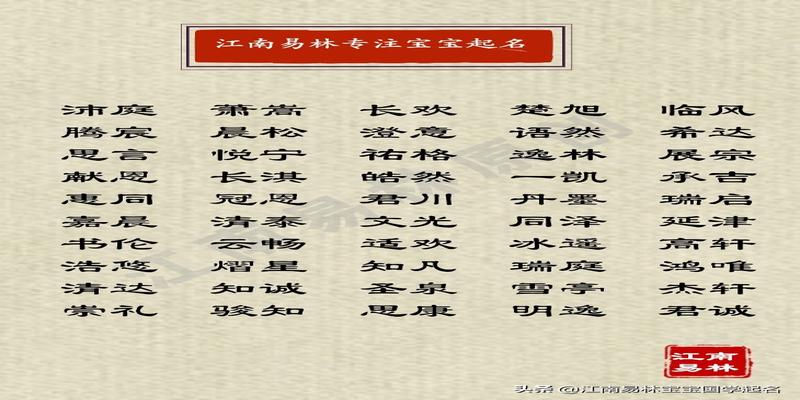 江南易林专注宝宝起名
沛庭 萧嵩 长欢 楚旭 临风
腾宸 晨松 澄意 语然 希达
思言 悦宁 祐格 逸林 展宗
献恩 长淇 皓然 一凯 承吉
惠同 冠恩 君川 丹墨 瑞启
嘉晨 清泰 文光 同泽 延津
书伦 云畅 适欢 冰遥 高轩
浩悠 熠星 知凡 瑞庭 鸿唯
清达 知诚 圣泉 雪亭 杰轩
崇礼 骏知 思康 明逸 君诚
江南易林原创
江南
易林
头条 @江南易林宝宝国学起名